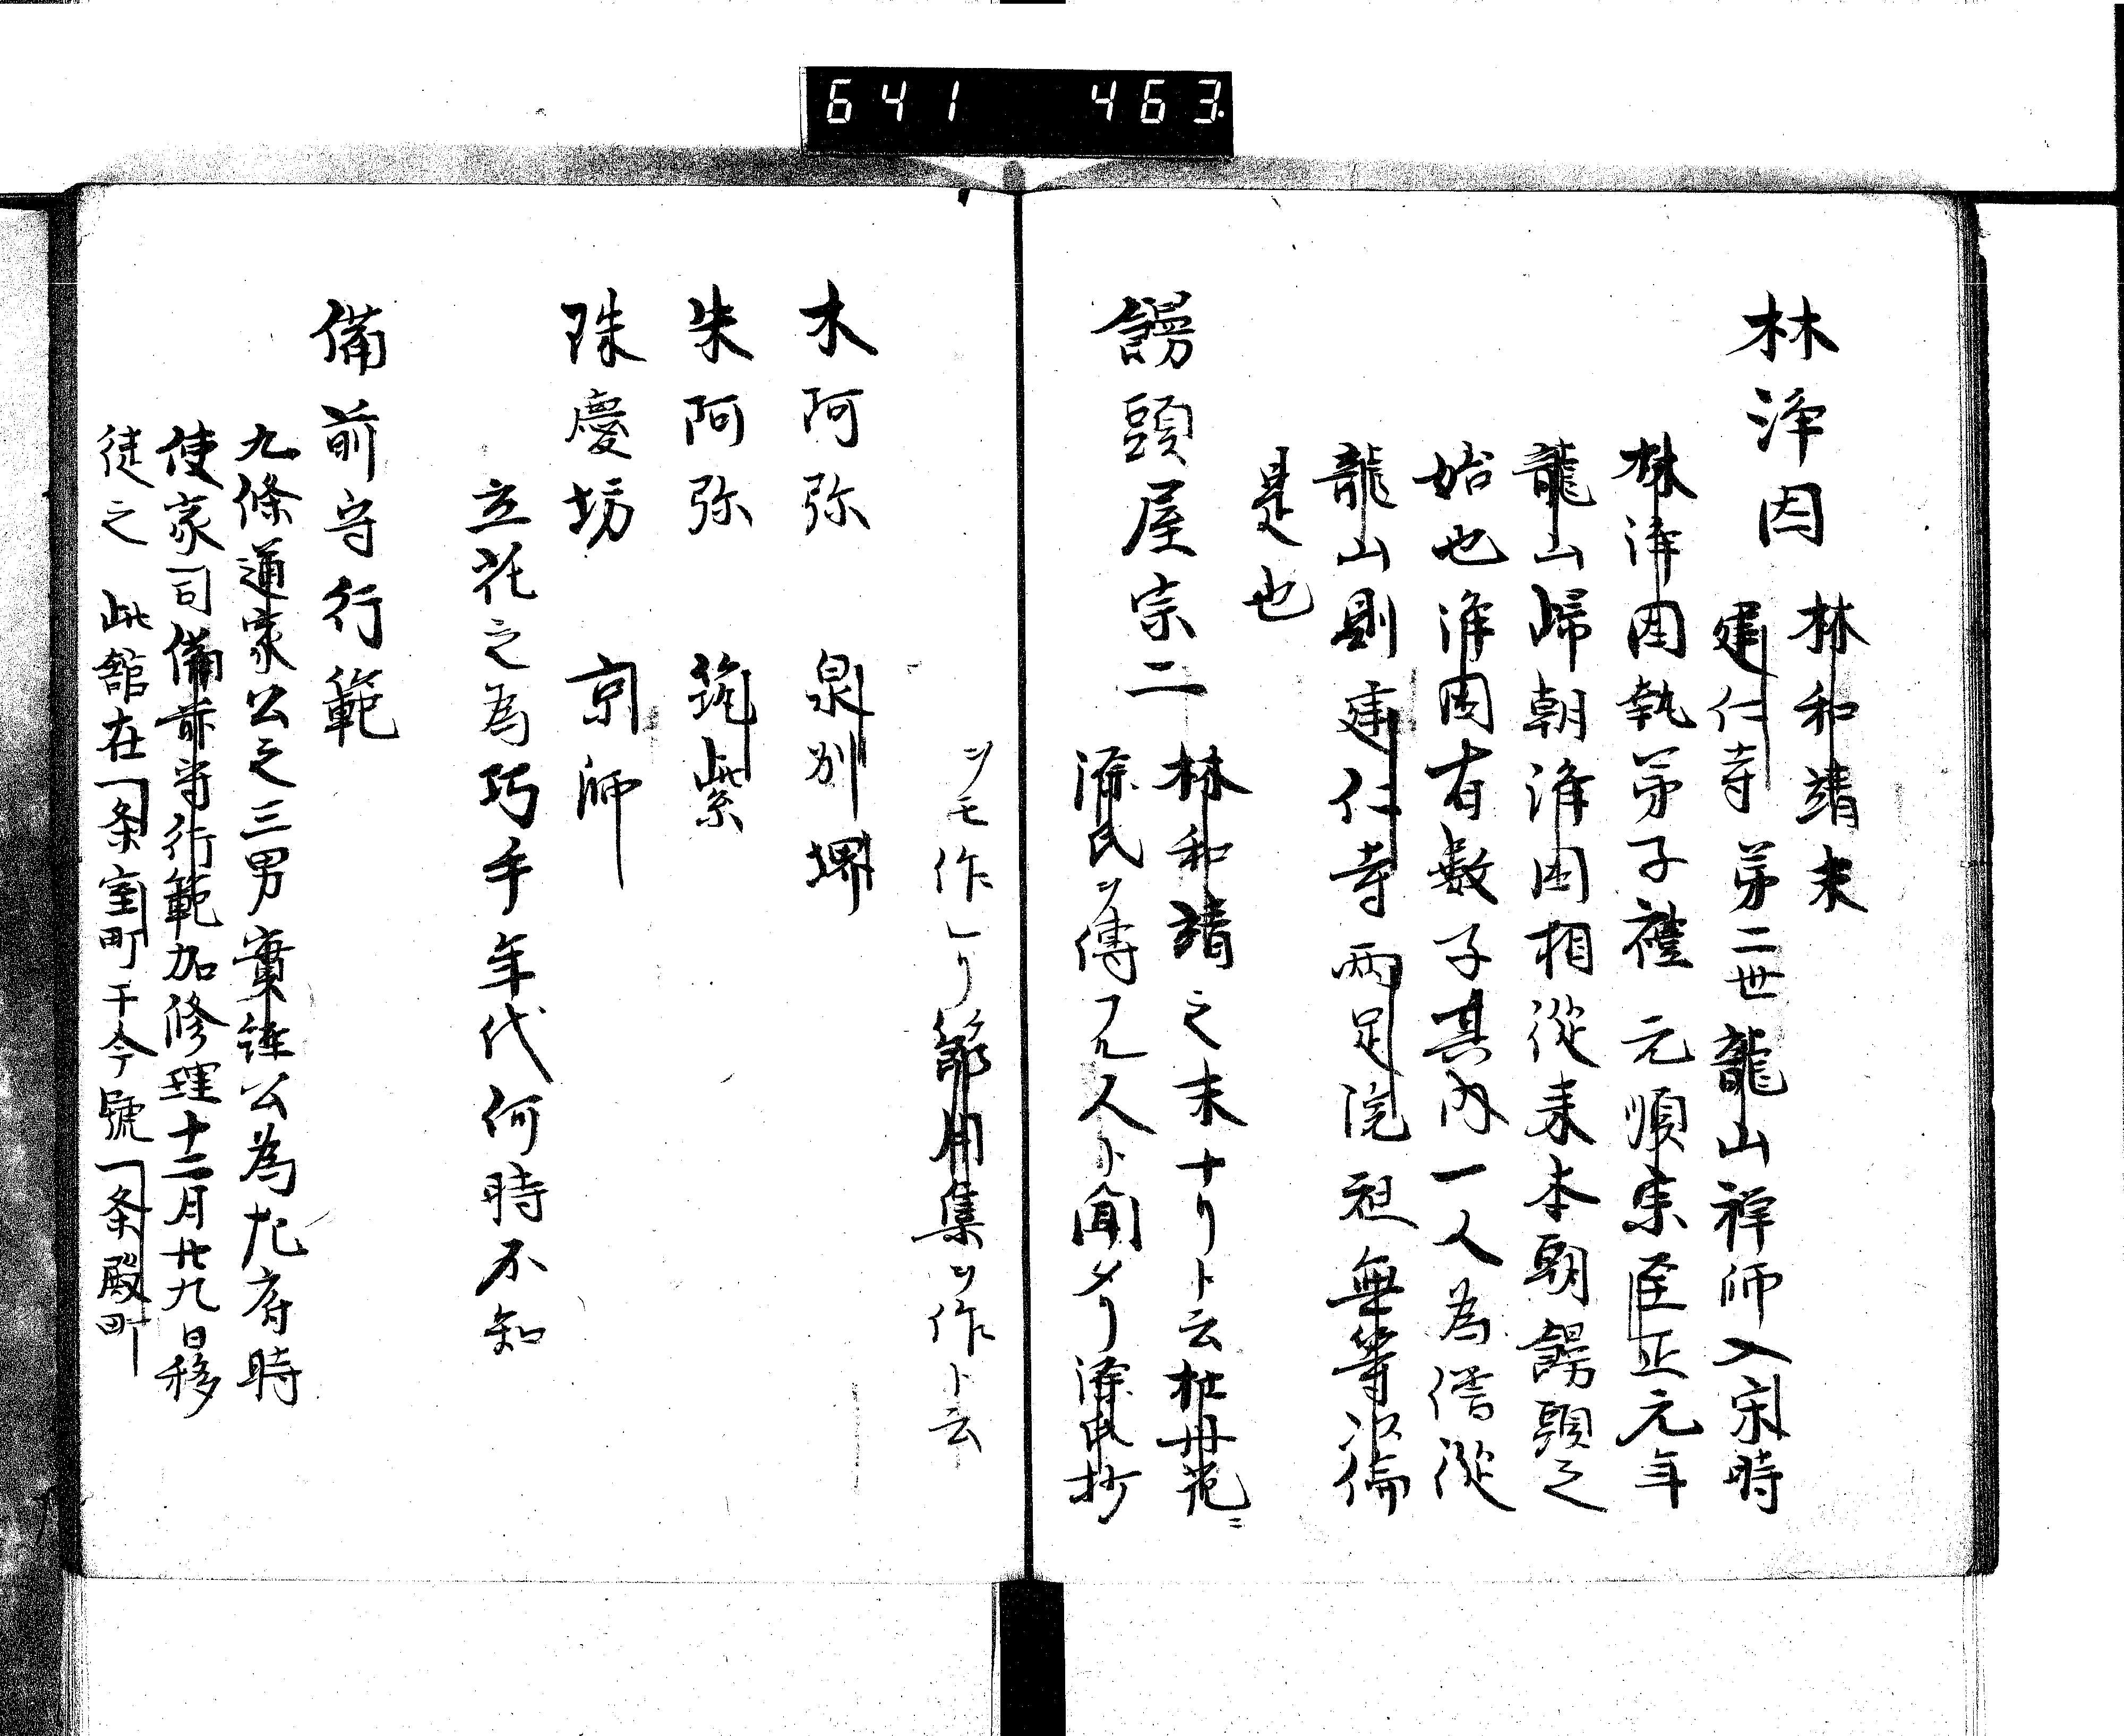 641 463.
林淨因 林和靖末
建仁寺第二世龍山禅師入宋時
林淨因執弟子禮元順宗至正元年
龍山歸朝淨因相從来本朝饅頭之
始也淨因有数子其内一人為僧從
龍山則建仁寺両足院祖無等以倫
是也
饅頭屋宗二 林和靖之末ナリト云牡丹花ニ
源氏ヲ傳フル人ト聞メリ源氏抄
ヲモ作レリ節用集ヲ作ト云
木阿弥 泉州堺
朱阿弥 筑紫
珠慶坊 京師
立花之為巧手年代何時不知
備前守行範
九條道家公之三男實經公為左府時
使家司備前守行範加修理十二月廿九日移
徒之 此舘在一条室町于今號一条殿町